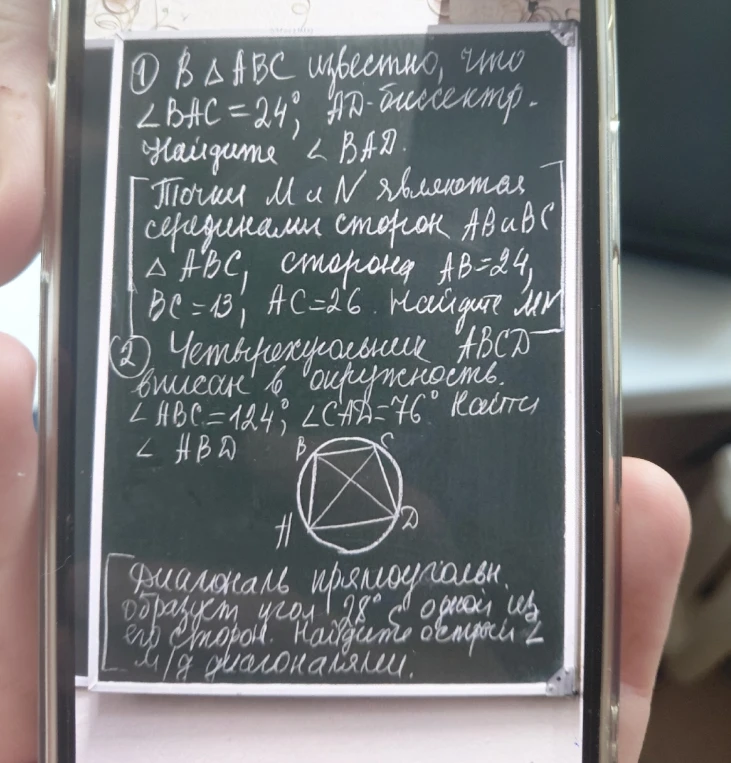 ① В △ ABC известно, что
∠BAC = 24°, AD - биссектр.
Найдите ∠ BAD.
Точки M и N являются
серединами сторон AB и BC
△ ABC, сторона AB = 24,
BC = 13, AC = 26. Найдите MN
② Четырехугольник ABCD
вписан в окружность.
∠ ABC = 124°, ∠CAD = 76° Найти
∠ ABD
B C
A D
Диагональ прямоугольн.
образует угол 28° с одной из
его сторон. Найдите острый ∠
м/д диагоналями.